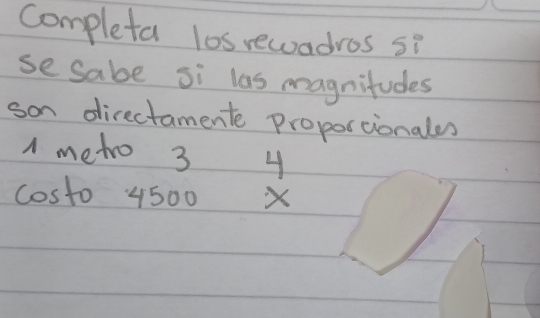 Completa los recuadros si
se sabe si las magnitudes
son directamente proporcionales
1 metro 3 4
costo 4500 x